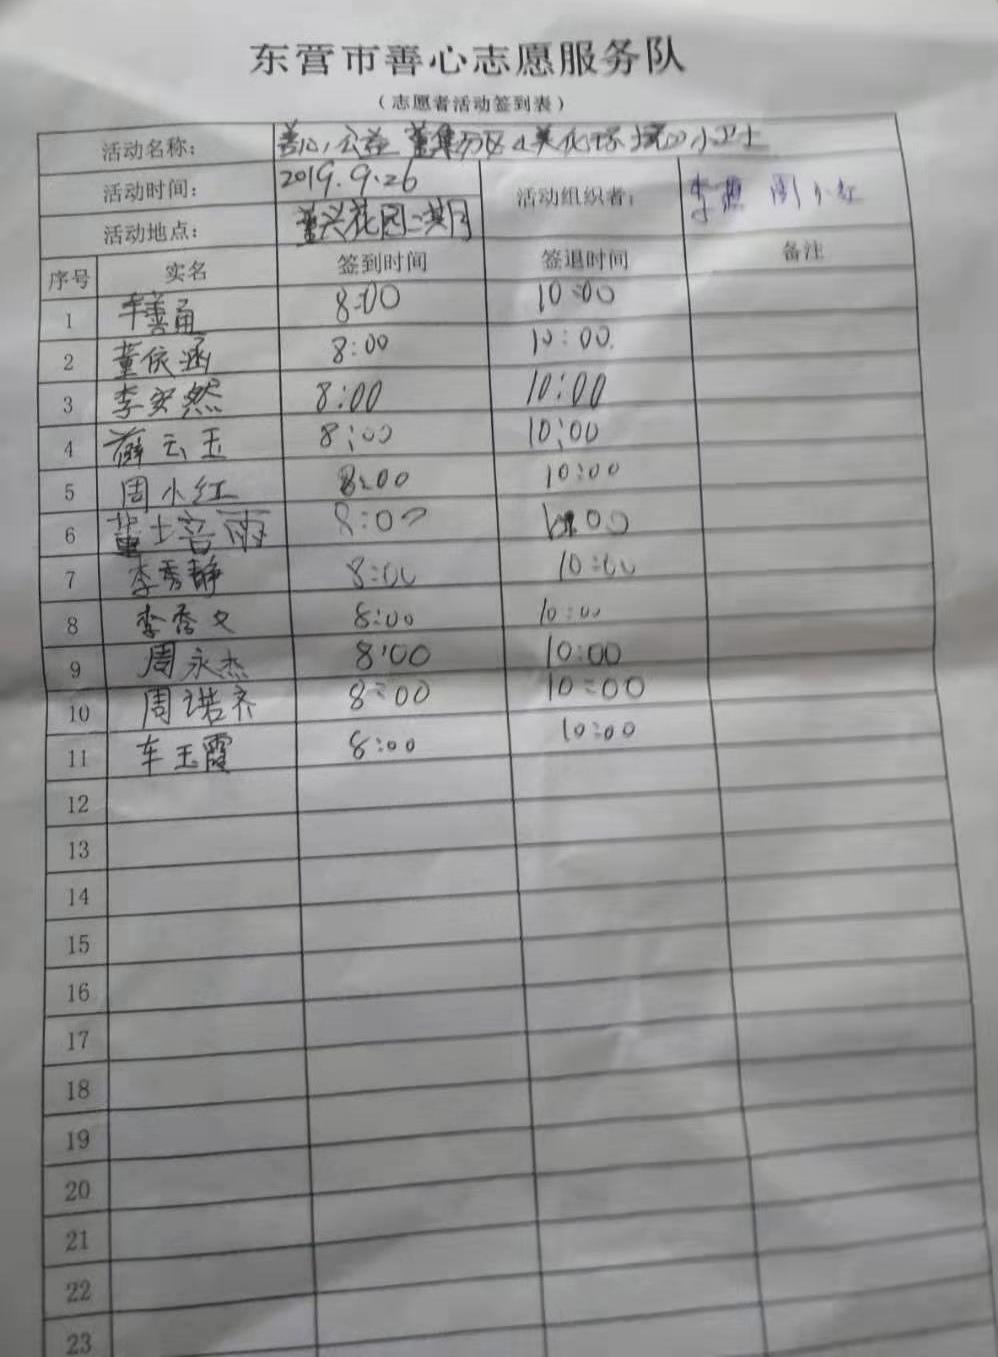 东营市善心志愿服务队
（志愿者活动签到表）
活动名称： 善心公益董集分队美化环境的小卫士
活动时间： 2019.9.26 活动组织者： 李燕 周小红
活动地点： 董兴花园二期
序号 实名 签到时间 签退时间 备注
1 8:00 10:00
2 董依涵 8:00 10:00
3 李安然 8:00 10:00
4 薛云玉 8:00 10:00
5 周小红 8:00 10:00
6 董培雨 8:00 10:00
7 李秀静 8:00 10:00
8 李秀文 8:00 10:00
9 周永杰 8:00 10:00
10 周诺齐 8:00 10:00
11 车玉霞 8:00 10:00
12
13
14
15
16
17
18
19
20
21
22
23